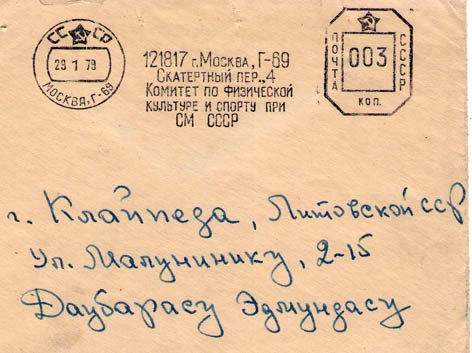 СС СР
29 1 79
МОСКВА, Г-69
121817 г. МОСКВА, Г-69
СКАТЕРТНЫЙ ПЕР., 4
КОМИТЕТ ПО ФИЗИЧЕСКОЙ
КУЛЬТУРЕ И СПОРТУ ПРИ
СМ СССР
ПОЧТА
003
СССР
КОП.
г. Клайпеда, Литовской ССР
Ул. Малунинику, 2-15
Даубарасу Эдмундасу